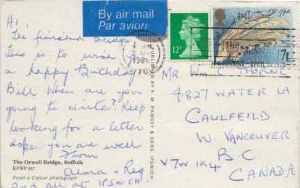 By air mail
Par avion
Hi,
The finished Bridge
This is to wish
a happy Birthday
Bill When are you
going to write? Keep
looking for a letter
Hope you are well
from
Reg
and all at IPSWICH
The Orwell Bridge, Suffolk
KPWP 517
From a Colour photograph
12P
7P
4827 WATER LA
CAULFEILD
W. VANCOUVER
B.C
V7W 1K4 CANADA